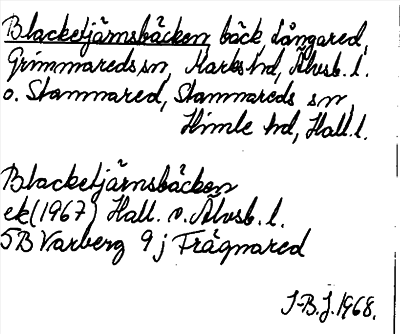 Blacketjärnsbäcken bäck Långared,
Grimmareds sn, Marks hd, Älvsb. l.
o. Stammared, Stammareds sn,
Himle hd, Hall. l.
Blacketjärnsbäcken
ek (1967) Hall. o. Älvsb. l.
5B Varberg 9j Frägnared
J-B. J. 1968.